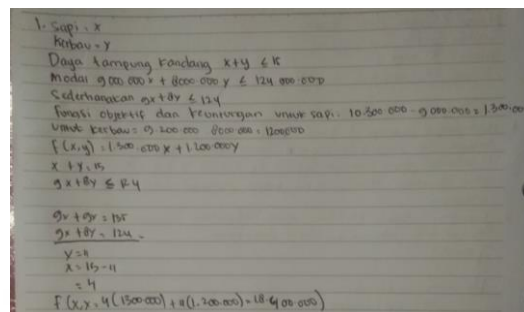 1. Sapi = x
Kerbau = y
Daya tampung kandang x+y ≤ 15
Modal 9.000.000 x + 8.000.000 y ≤ 124.000.000
Sederhanakan 9x+8y ≤ 124
Fungsi objektif dan keuntungan untuk sapi: 10.300.000 - 9.000.000 = 1.300.00
Untuk kerbau = 9.200.000 8000.000 = 1200000
f(x,y) = 1.300.000x + 1.200.000y
x + y = 15
9x+8y ≤ 124
9x + 9y = 135
9x + 8y = 124 -
y = 11
x = 15 - 11
= 4
f(x,y = 4(1300.000) + 11(1.200.000) = 18.400.000)